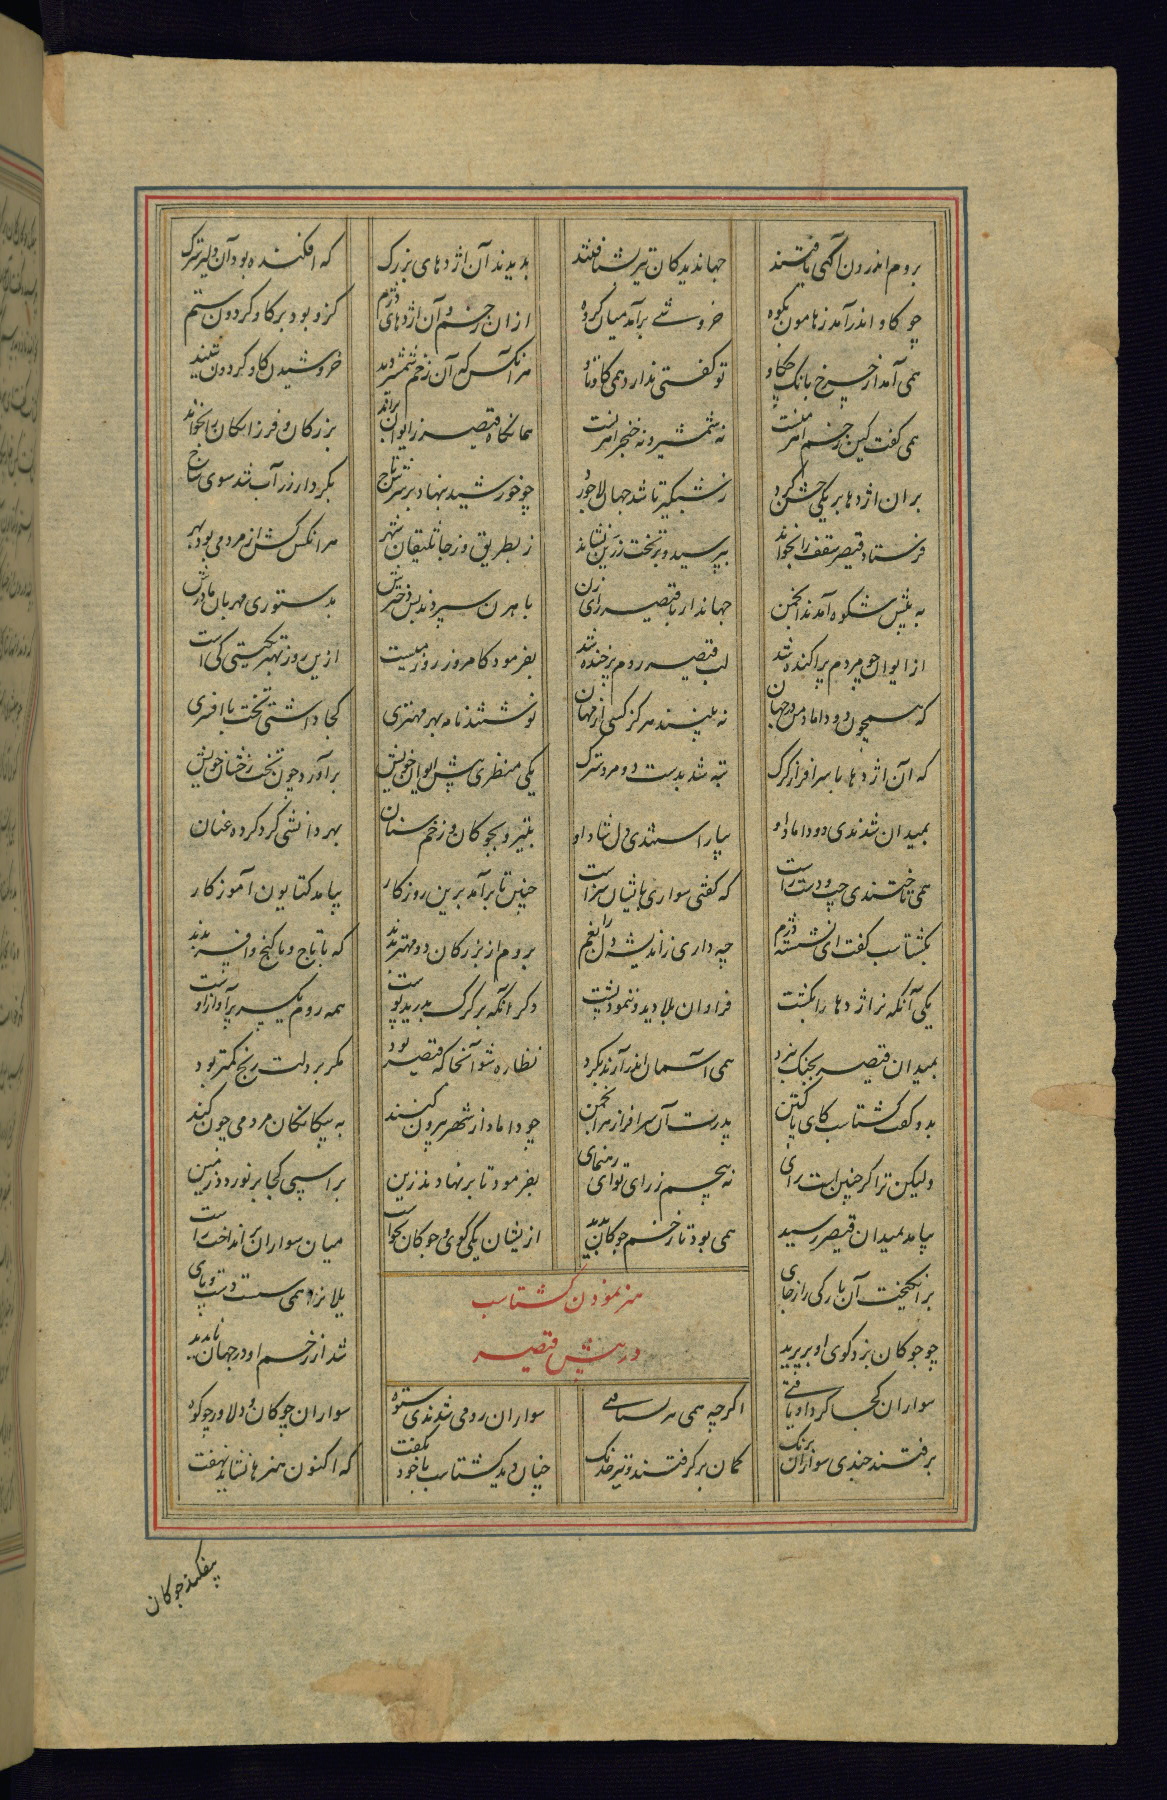 بروم اندرون آگهی یافتند جهاندیدگان تیز بشتافتند بدیدند آن اژدهای بزرگ که افکنده بود آن دلیر سترگ
چو گاو اندر آمد ز هامون بکوه خروشی برآمد میان گروه ازان زخم و آن اژدهای دژم کزو بود بر گاو گردون ستم
همی آمد از چرخ بانگ چکاو تو گفتی ندارد همی گاو تاو هر آنکس که آن زخم شمشیر دید خروشیدن گاو گردون شنید
همی گفت کین زخم آهرمنست نه شمشیر و نه خنجر آهنست همانگاه قیصر ز ایوان براند بزرگان و فرزانگان را بخواند
بران اژدها بر یکی جشن کرد ز شبگیر تا شد جهان لاجورد چو خورشید بنهاد بر سرش تاج بکردار زر آب شد سوی ساج
فرستاد قیصر سقف را بخواند بپرسید و بر تخت زرین نشاند ز بطریق و ز جاثلیقان شهر هر آنکس کش از مردمی بود بهر
به پیش شکوه آمدند انجمن جهاندار با قیصر رای زن باهرن سپردند پس دخترش بدستوری مهربان مادرش
از ایوان چو مردم پراکنده شد لب قیصر روم پر خنده شد بفرمود کامروز روز منست ازین روز بهتر بگیتی کی است
که همچون دو داماد من در جهان نه بینند هرگز کسی از مهان نوشتند نامه بهر مهتری کجا داشتی تخت با افسری
که آن اژدها با سرافراز گرگ تبه شد بدست دو مرد سترگ یکی منظری پیش ایوان خویش برآورد چون تخت رخشان خویش
بمیدان شدندی دو داماد او بیاراستندی دل شاد او بتیر و بچوگان و زخم سنان بهر دانشی گرد کرده عنان
همی تاختندی چپ و دست راست که گفتی سواری بدیشان سزاست چنین تا برآمد برین روزگار بیامد کتایون آموزگار
بگشتاسب گفت ای نشسته دژم چه داری ز اندیشه دل را بغم بروم از بزرگان دو مهتر بدند که با تاج و با گنج و افسر بدند
یکی آنکه نر اژدها را بکشت فراوان بلا دید و ننمود پشت دگر آنکه بر گرگ بدرید پوست همه روم یکسر پر آواز اوست
بمیدان قیصر بجنگ نبرد همی آسمان اندر آرند بگرد نظاره شو آنجا که قیصر بود مگر بر دلت رنج کمتر بود
بدو گفت گشتاسب کای پاک تن پدرت آن سرافراز هر انجمن چو داماد از شهر بیرون کنند به بیگانگان مردمی چون کنند
ولیکن ترا گر چنین است رای نه پیچم ز رای تو ای رهنمای بفرمود تا بر نهادند زین بر اسپی کجا بر نوردد زمین
بیامد بمیدان قیصر رسید همی بود تا زخم چوگان بدید ازیشان یکی گوی و چوگان بخواست میان سواران برانداخت راست
برانگیخت آن بارگی را ز جای یلان را همی سست شد دست و پای
چو چوگان بزد گوی او برپرید شد از زخم او در جهان ناپدید
هنر نمودن گشتاسب
در پیش قیصر
سواران کجا گرد او یافتی اگرچه همی سر بسر تافتی سواران رومی شدندی ستوه سواران چوگان و دلاور چو کوه
برفتند چندی سواران برنگ کمان برگرفتند و تیر خدنگ چنان دید گشتاسب با خود بگفت که اکنون هنرها نشاید نهفت
بیفکند چوگان